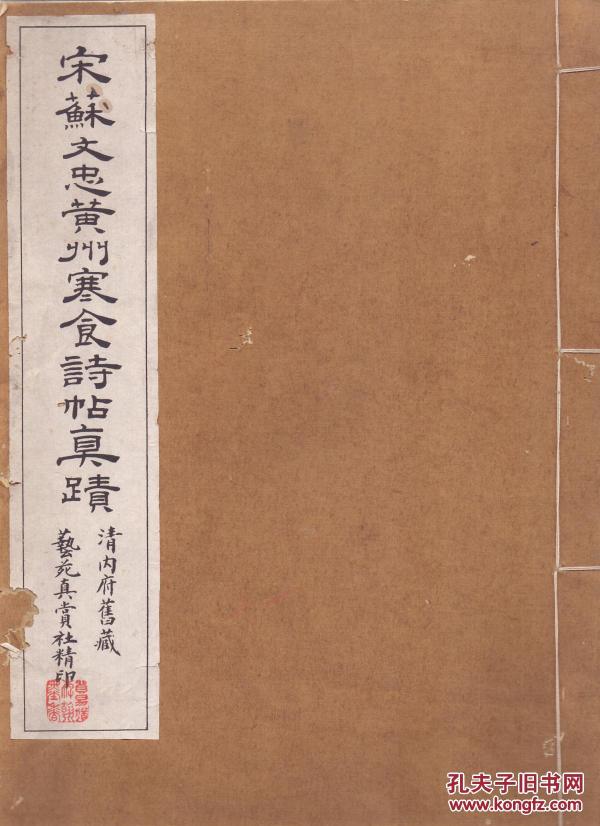 宋蘇文忠黄州寒食詩帖真蹟
清内府舊藏
藝苑真賞社精印
孔夫子旧书网
www.kongfz.com